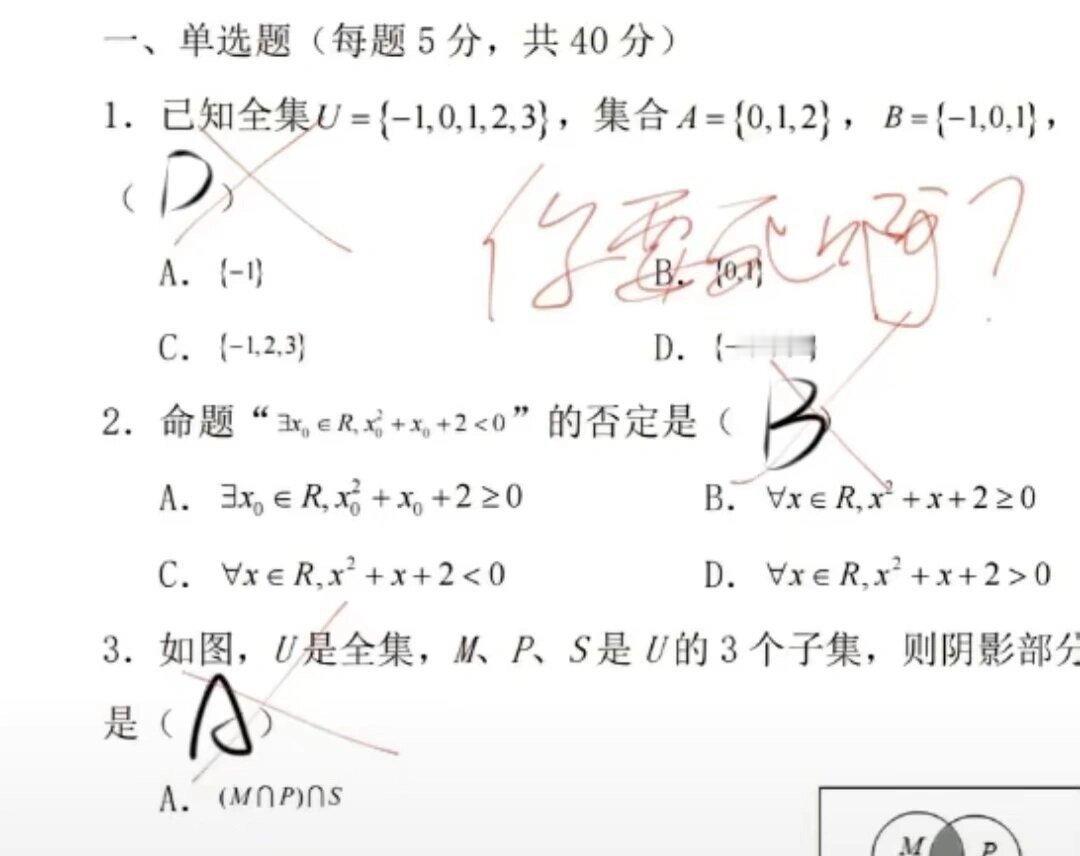 一、单选题（每题 5 分，共 40 分）
1. 已知全集 U = {−1,0,1,2,3}，集合 A = {0,1,2}，B = {−1,0,1}，
（ D ）
你要死啊？
A. {−1}
B. {0,1}
C. {−1,2,3}
D. {−
2. 命题“∃x₀ ∈ R, x₀² + x₀ + 2 < 0”的否定是（ B ）
A. ∃x₀ ∈ R, x₀² + x₀ + 2 ≥ 0
B. ∀x ∈ R, x² + x + 2 ≥ 0
C. ∀x ∈ R, x² + x + 2 < 0
D. ∀x ∈ R, x² + x + 2 > 0
3. 如图，U 是全集，M、P、S 是 U 的 3 个子集，则阴影部分
是（ A ）
A. (M∩P)∩S
M
P